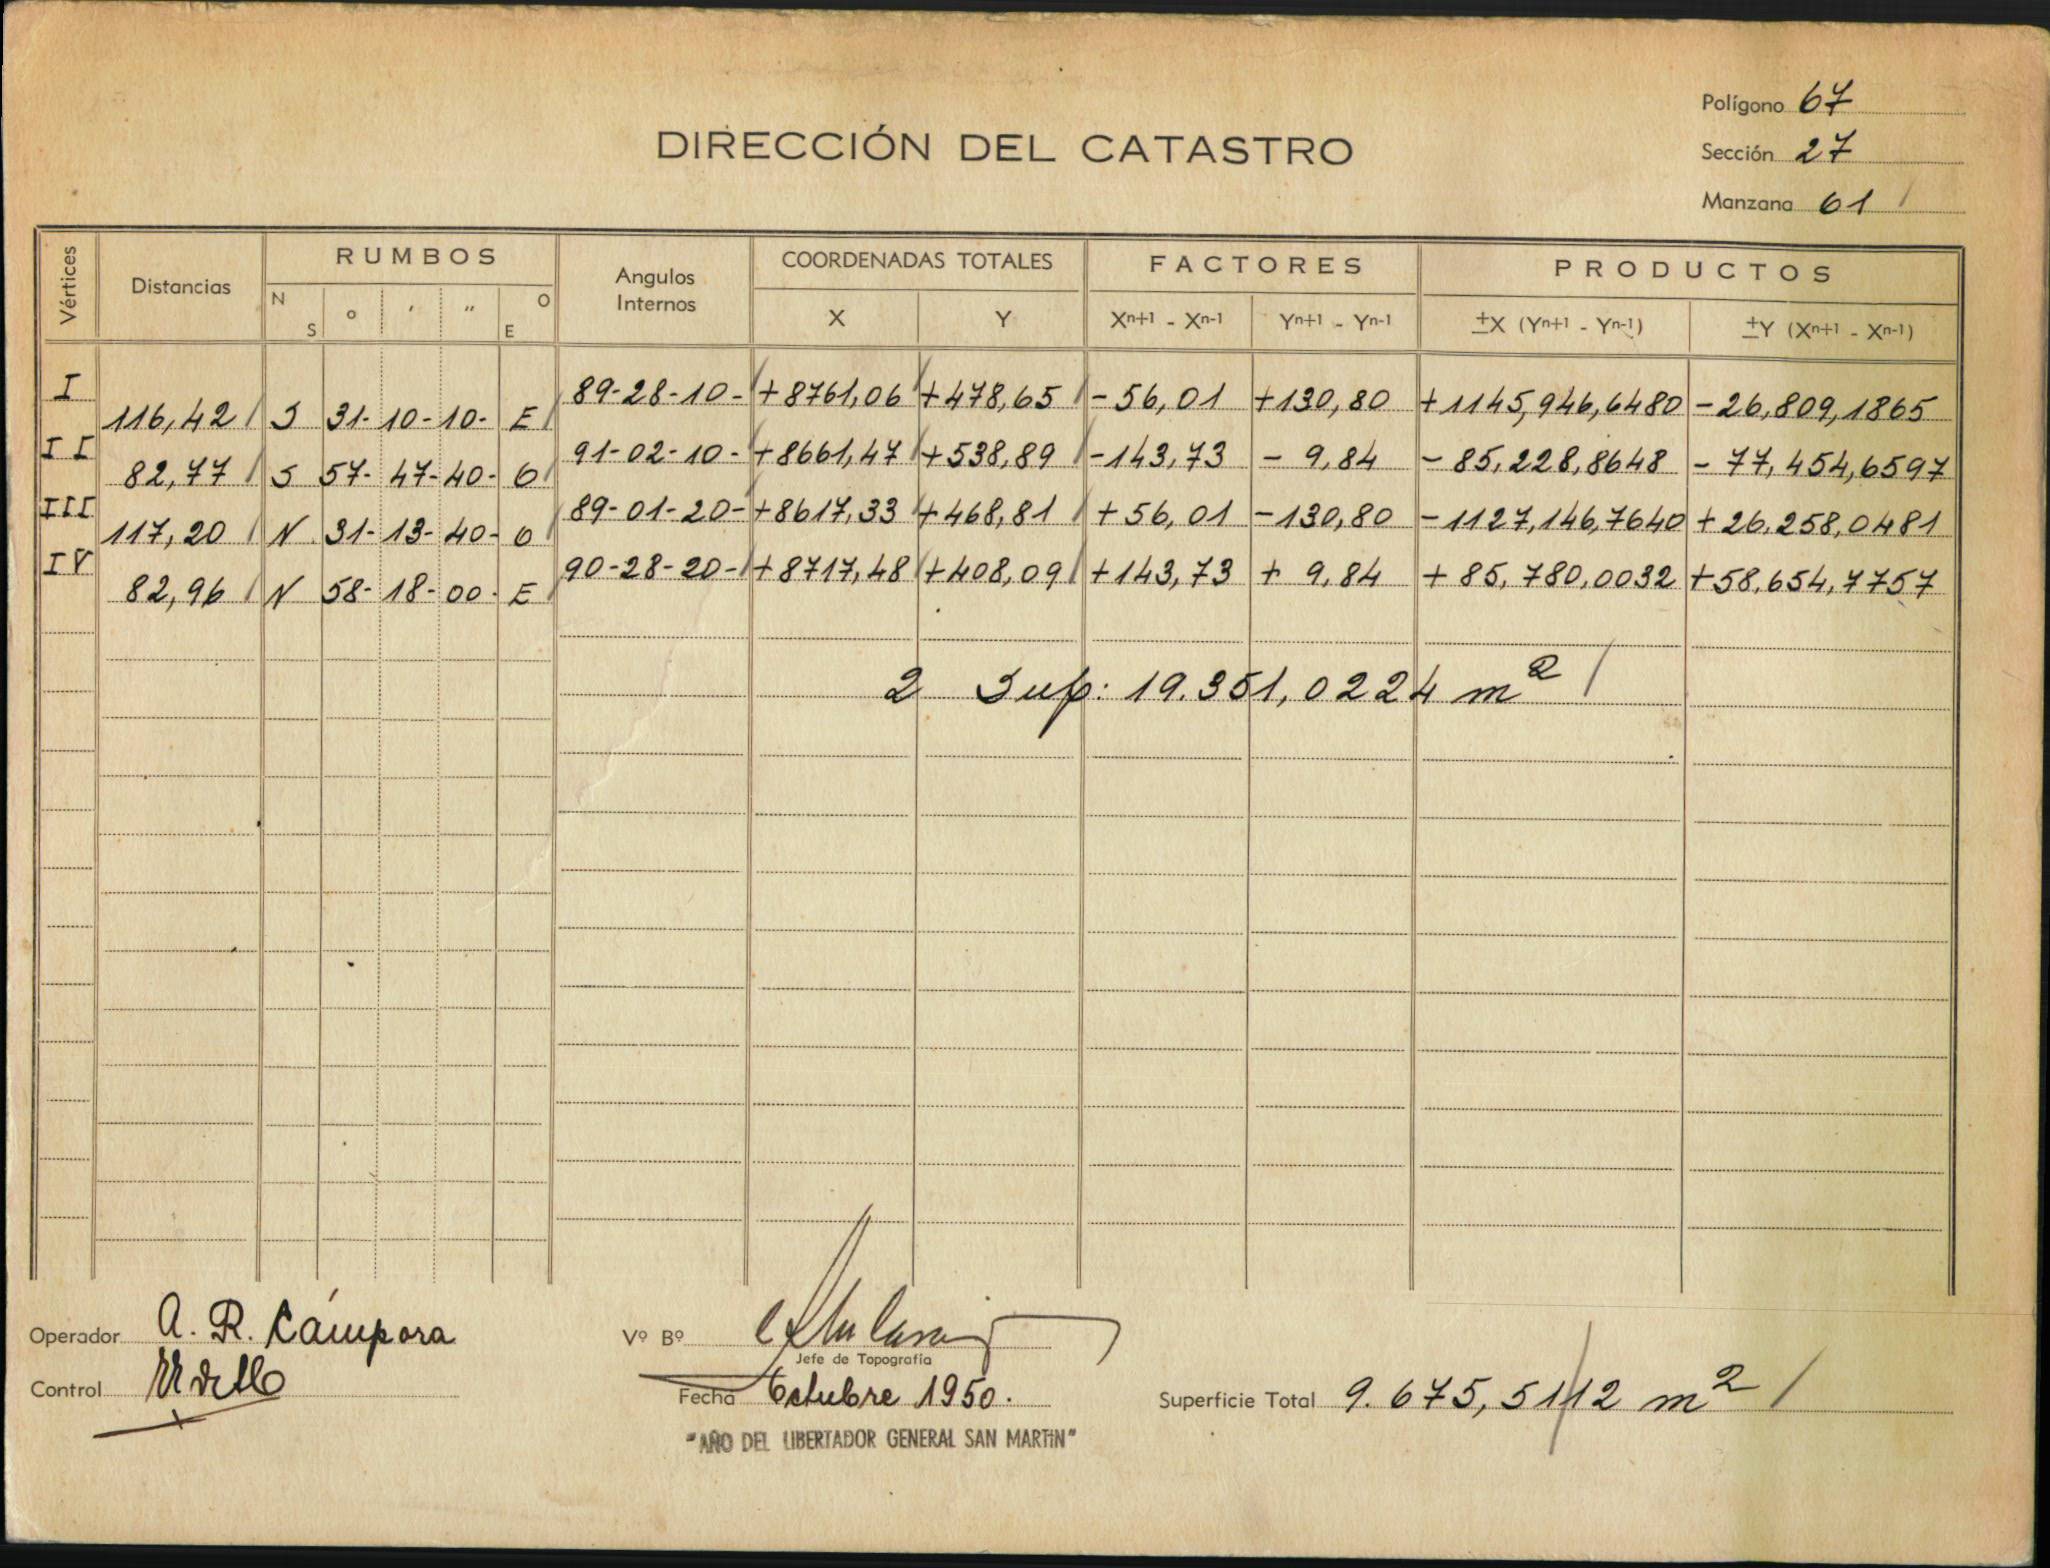 Polígono 67
DIRECCIÓN DEL CATASTRO
Sección 27
Manzana 61
Vértices Distancias RUMBOS Angulos Internos COORDENADAS TOTALES FACTORES PRODUCTOS
N S o ' " O E X Y Xn+1 - Xn-1 Yn+1 - Yn-1 ±X (Yn+1 - Yn-1) ±Y (Xn+1 - Xn-1)
I 89-28-10- +8761,06 +478,65 -56,01 +130,80 +1145,946,6480 -26,809,1865
116,42 S 31-10-10- E
II 91-02-10- +8661,47 +538,89 -143,73 - 9,84 - 85.228,8648 - 77,454,6597
82,77 S 57-47-40- O
III 89-01-20- +8617,33 +468,81 +56,01 -130,80 -1127,146,7640 +26.258,0481
117,20 N 31-13-40- O
IV 90-28-20- +8717,48 +408,09 +143,73 + 9,84 + 85.780,0032 +58.654,7757
82,96 N 58-18-00- E
2 Sup: 19.351,0224 m²
Operador A. R. Cámpora
Vº Bº
Jefe de Topografía
Control
Fecha Octubre 1950.
Superficie Total 9.675,5112 m²
"AÑO DEL LIBERTADOR GENERAL SAN MARTIN"